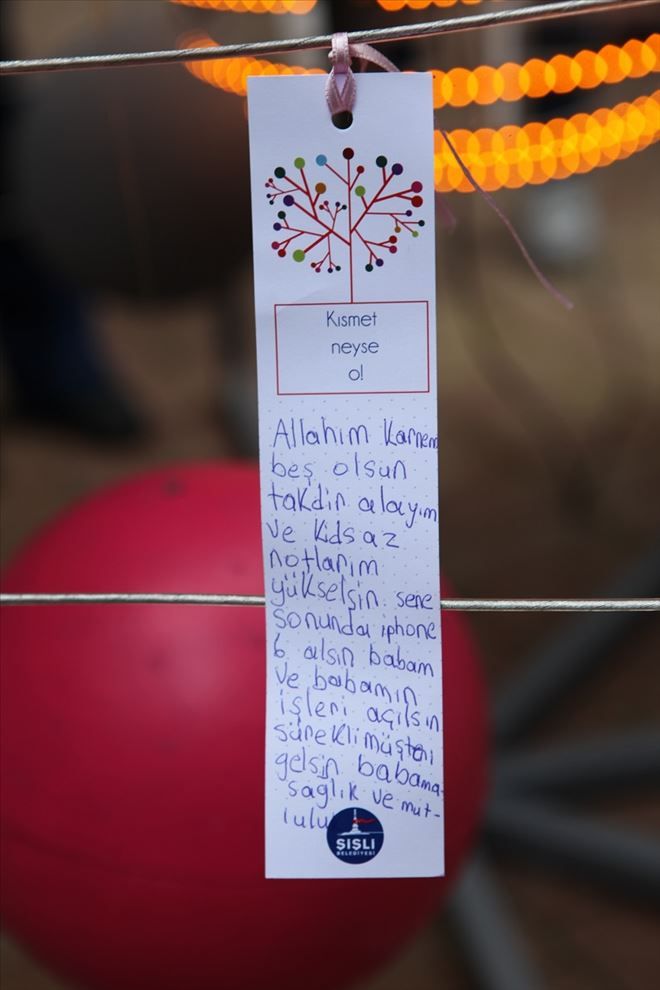 Kısmet
neyse
ol!
Allahım Karnem
beş olsun
takdir alayım
ve kidsaz
notlarım
yükselsin. sene
sonunda iphone
6 alsın babam
ve babamın
işleri açılsın
sürekli müşteri
gelsin babama
sağlık ve mut-
lulu
ŞİŞLİ
BELEDİYESİ